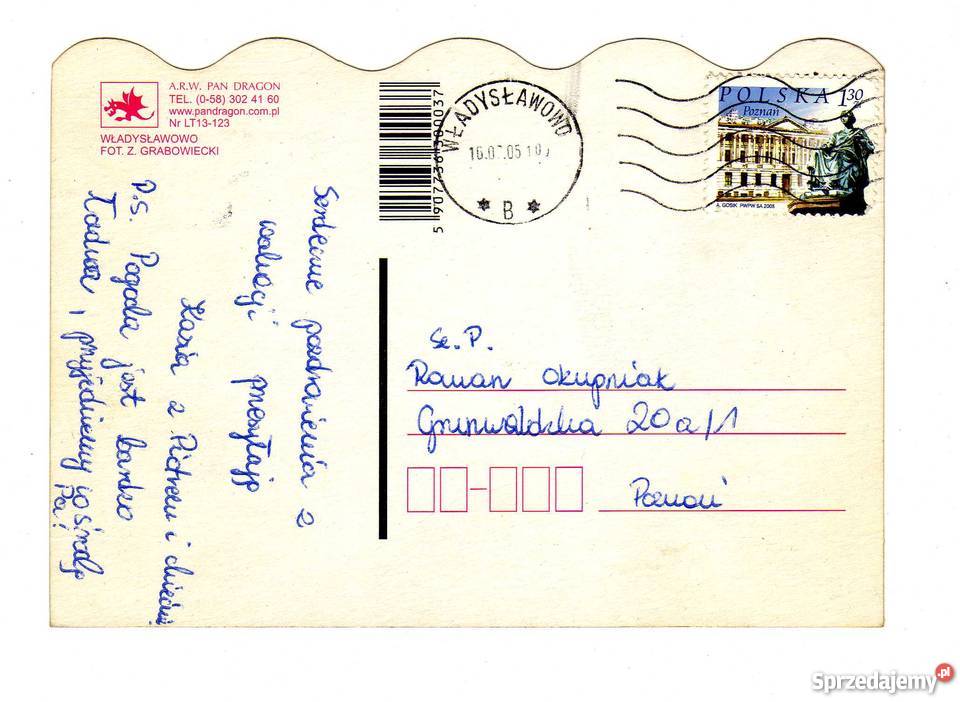 A.R.W. PAN DRAGON
TEL. (0-58) 302 41 60
www.pandragon.com.pl
Nr LT13-123
WŁADYSŁAWOWO
FOT. Z. GRABOWIECKI
5 907736 380037
WŁADYSŁAWOWO
05
B
POLSKA 130
Poznań
A. GOSIK PWPW SA 2005
Serdeczne pozdrowienia z
wakacji przesyłają
Kasia z Piotrem i dziećmi
P.S. Pogoda jest bardzo
Ładna i przyjedziemy w środę
Pa!
Sz. P.
Roman Okupniak
Grunwaldzka 20a/1
Poznań
Sprzedajemy.pl